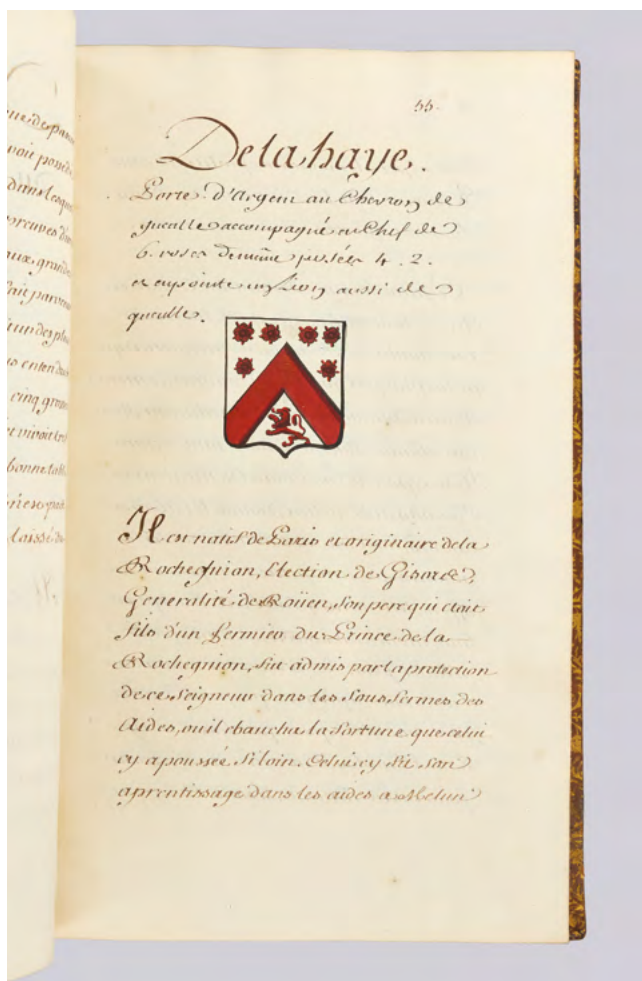 ue de pa
voit possed
dans lesqu
preuves d'un
aux grand
fait parven
l'un des plu
us entendu
cinq grosse
et vivoit tr
bonne tabl
n'en a poi
laissé d
55.
Delahaye.
Porte d'Argent au Chevron de
gueulle accompagné en Chef de
6. roses de même posées 4. 2.
et en pointe un Lion aussi de
gueulle.
Il est natif de Paris et originaire de la
Rocheguion, Election de Gisors,
Generalité de Roüen, son pere qui etoit
fils d'un fermier du Prince de la
Rocheguion, fut admis par la protection
de ce Seigneur dans les Sous fermes des
Aides, ou il ebaucha la fortune que celui
cy a poussée si loin. Celui cy fit son
aprentissage dans les aides a Melun